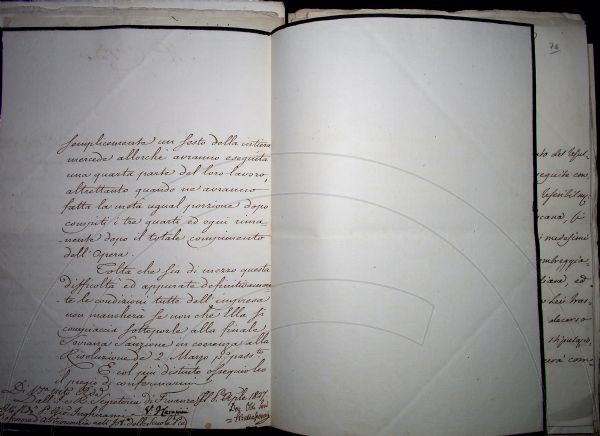 semplicemente un sesto della intiera
mercede allorche avranno eseguita
una quarta parte del loro lavoro,
altrettanto quando ne avranno
fatta la metà ugual porzione dopo
compiti i tre quarti ed ogni rima-
nente dopo il totale compimento
dell'Opera.
Tolta che sia di mezzo questa
difficoltà ed appurate definitivamen-
te le condizioni tutte dell'impresa
non mancherà se non che Ella si
compiaccia sottoporle alla finale
Sovrana Sanzione in coerenza alla
Risoluzione de' 2 Marzo p° pass to
E col più distinto ossequio ho
il pregio di confermarmi
Di
Dall'I. e R. Segreteria di Finanze
delle Scuole Pie
74
to del
eguito con
cana, li
i medesimi
ombreggia
liana, ed
decorso
stipulazio
erà com